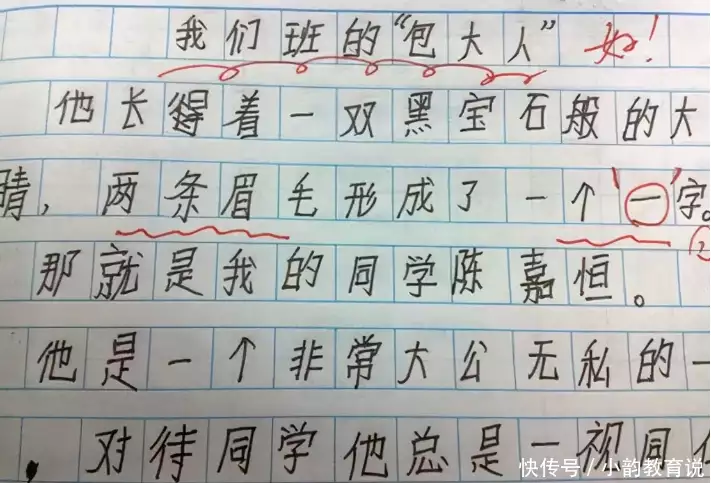 我们班的“包大人” 好！
他长得着一双黑宝石般的大
睛，两条眉毛形成了一个“一”字。
那就是我的同学陈嘉恒。
他是一个非常大公无私的一
，对待同学他总是一视同
快传号／小韵教育说